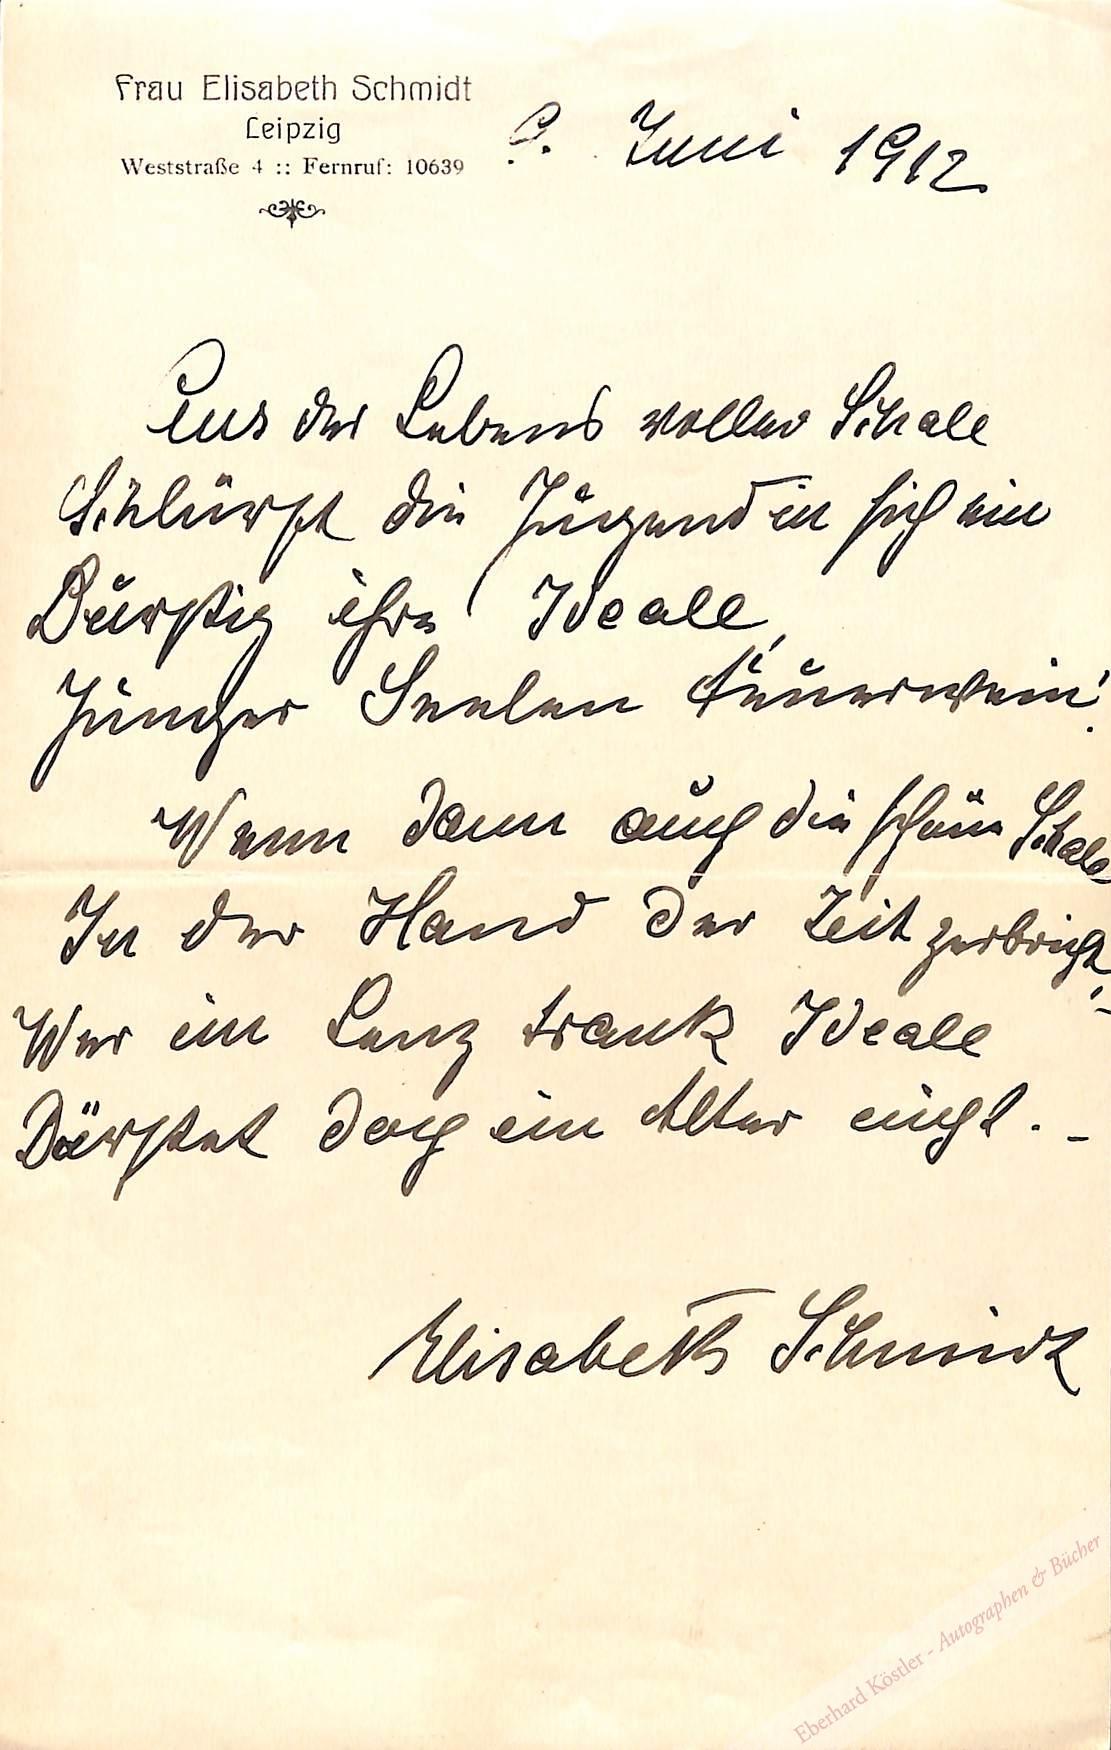 Frau Elisabeth Schmidt
Leipzig
Weststraße 4 :: Fernruf: 10639
9. Juni 1912
Aus des Lebens voller Schale
Schlürft die Jugend in sich ein
Durstig ihre Ideale,
Junger Seelen Feuerwein!
Wenn dann auch die schöne Schale
In der Hand der Zeit zerbricht, –
Wer im Lenz trank Ideale
Dürstet doch im Alter nicht. –
Elisabeth Schmidt
Eberhard Köstler - Autographen & Bücher